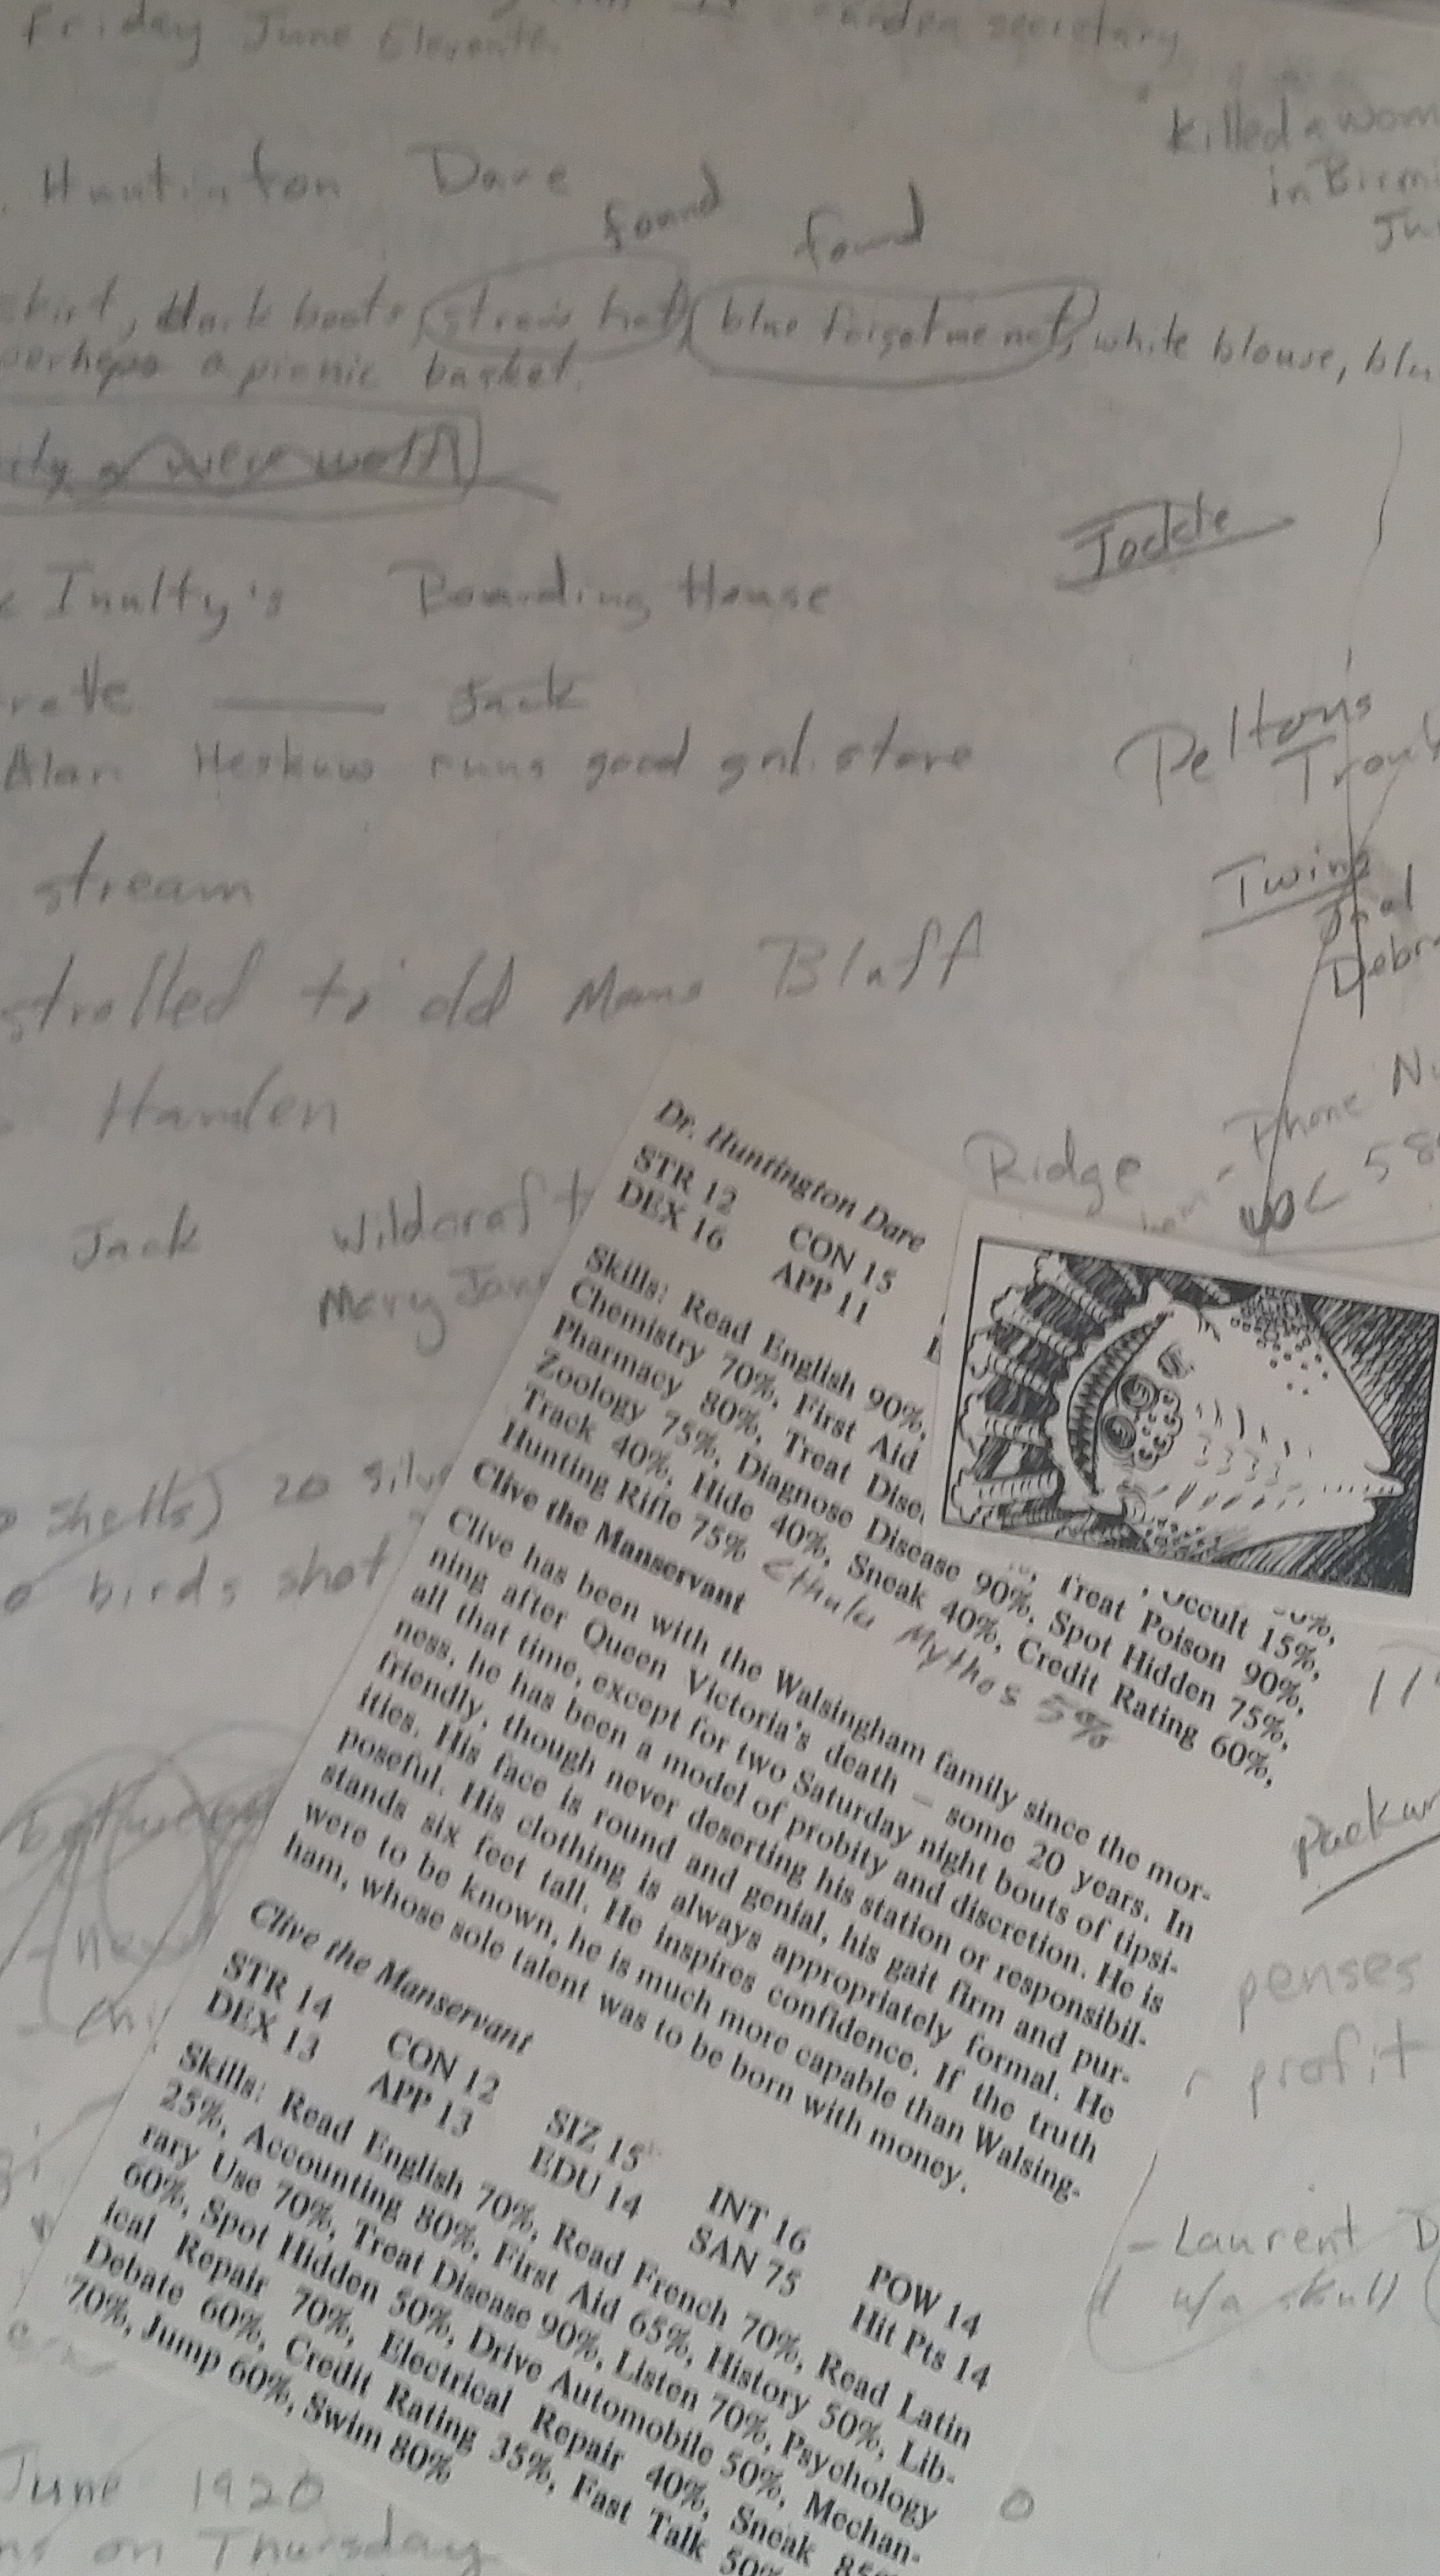 Friday June Eleventh
secretary
Killed a wom
in Birmi
Ju
Huntinton Dare
found found
skirt, dark boots, straw hat, blue forgetmenot, white blouse, blu
perhaps a picnic basket.
werewolf
Jackle
Inulty's Boarding House
Jack
Alan Heskuw runs good gnl. store
Peltons
Twins
Joel
Debra
stream
strolled to old Mans Bluff
Hamlen
Phone Nu
Ridge
Jack Wildcraft
Mary Jan
shells) 20 silv
birds shot
Dr. Huntington Dare
STR 12 CON 15
DEX 16 APP 11
Skills: Read English 90%,
Chemistry 70%, First Aid 90%,
Pharmacy 80%, Treat Disease, Occult 15%,
Zoology 75%, Diagnose Disease 90%, Treat Poison 90%,
Track 40%, Hide 40%, Sneak 40%, Spot Hidden 75%,
Hunting Rifle 75% Credit Rating 60%,
Cthulu Mythos 5%
Clive the Manservant
Clive has been with the Walsingham family since the mor-
ning after Queen Victoria's death – some 20 years. In
all that time, except for two Saturday night bouts of tipsi-
ness, he has been a model of probity and discretion. He is
friendly, though never deserting his station or responsibil-
ities. His face is round and genial, his gait firm and pur-
poseful. His clothing is always appropriately formal. He
stands six feet tall. He inspires confidence. If the truth
were to be known, he is much more capable than Walsing-
ham, whose sole talent was to be born with money.
Clive the Manservant
STR 14 CON 12 SIZ 15 INT 16 POW 14
DEX 13 APP 13 EDU 14 SAN 75 Hit Pts 14
Skills: Read English 70%, Read French 70%, Read Latin
25%, Accounting 80%, First Aid 65%, History 50%, Lib-
rary Use 70%, Treat Disease 90%, Listen 70%, Psychology
60%, Spot Hidden 50%, Drive Automobile 50%, Mechan-
ical Repair 70%, Electrical Repair 40%, Sneak 85%,
Debate 60%, Credit Rating 35%, Fast Talk 50%
70%, Jump 60%, Swim 80%
Packar
penses
profit
- Laurent D
w/a skull
June 1920
on Thursday